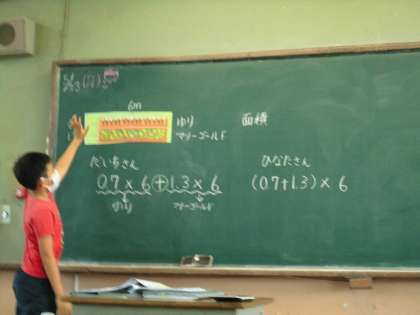 6m
ゆり
マリーゴールド
面積
だいちさん
0.7×6+1.3×6
ゆり
マリーゴールド
ひなたさん
(0.7+1.3)×6